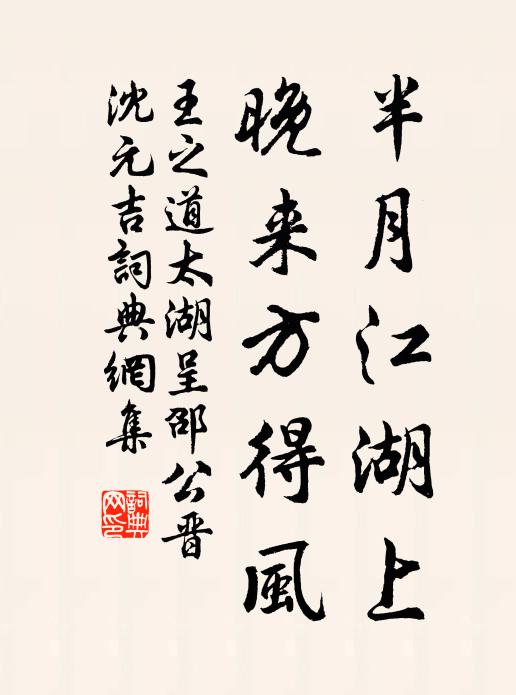 半月江湖上
晚来方得風
王之道太湖呈邵公晋
沈元吉詞典網集
詞典網印